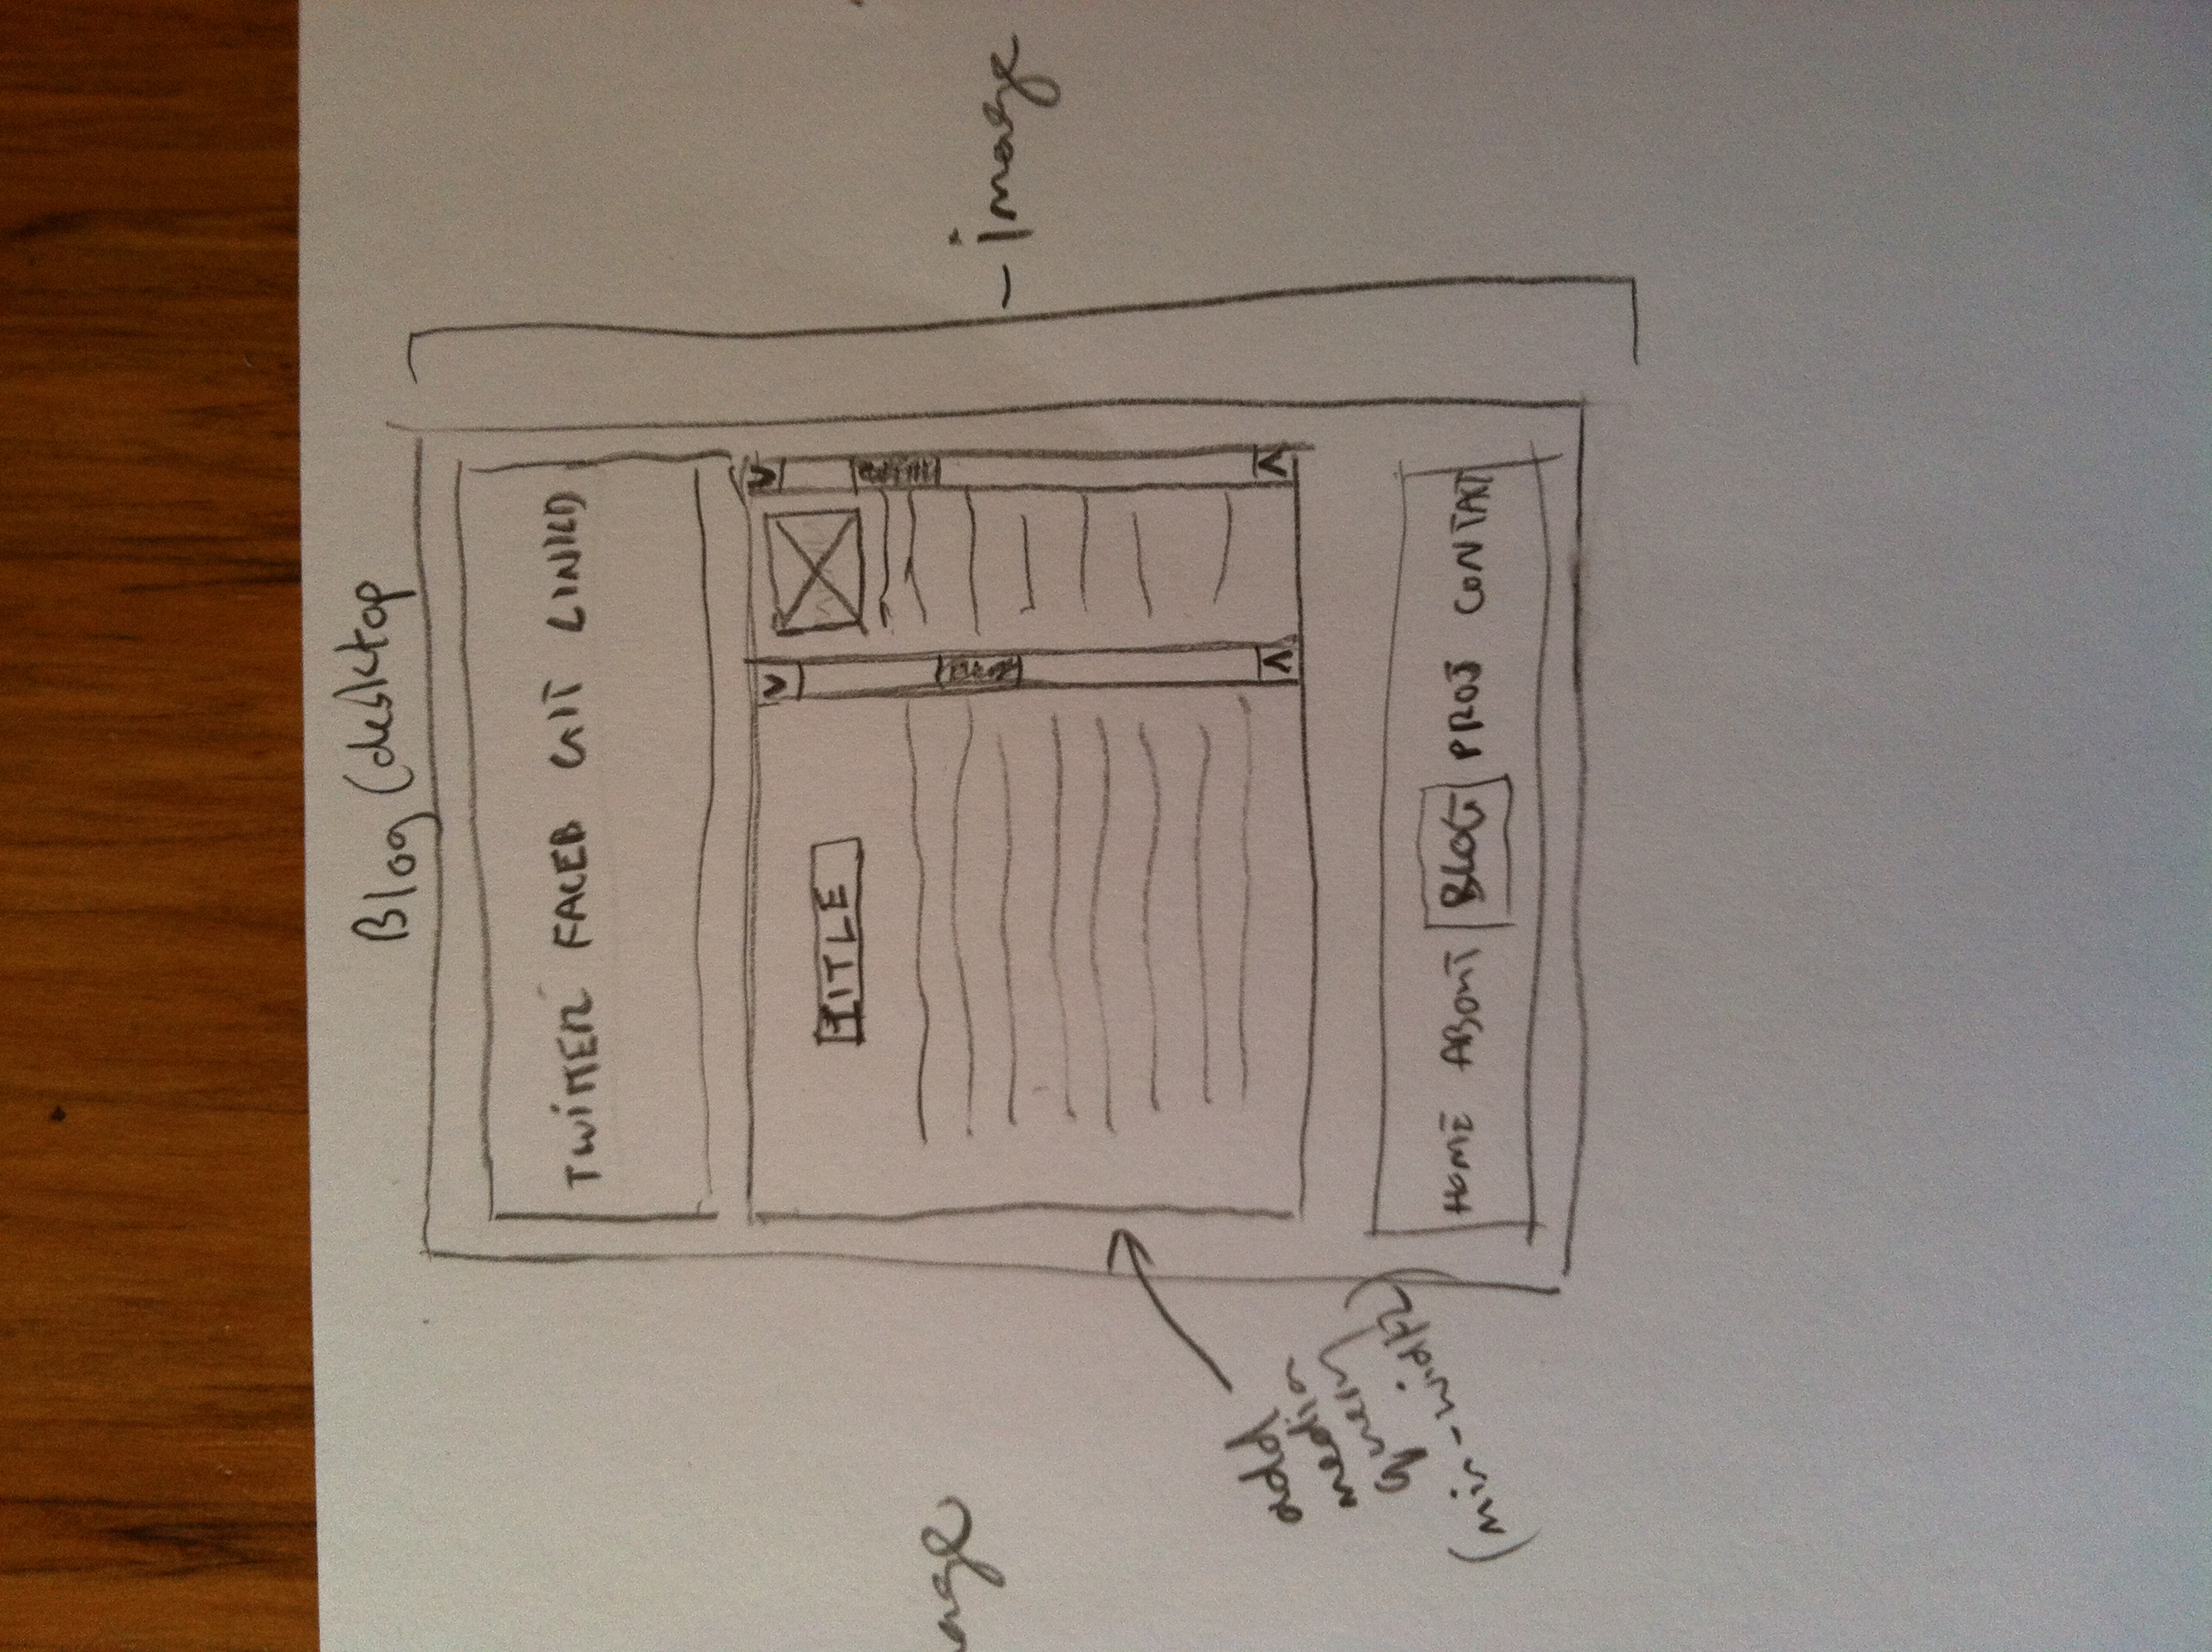 Blog (desktop
TWITTER FACEB GIT LINKD
TITLE
age
- image
add
media
query
(min-width)
HOME ABOUT BLOG PROJ CONTACT